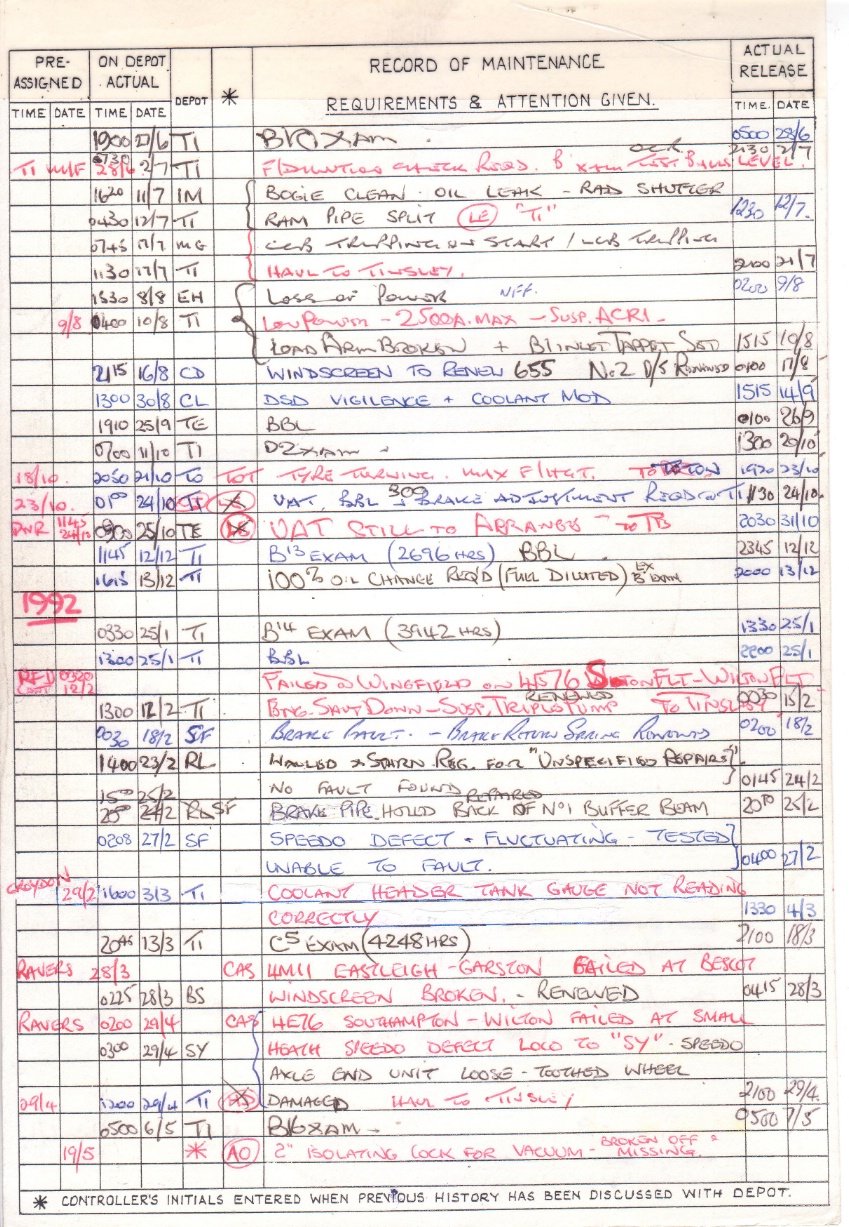 PRE-ASSIGNED ON DEPOT ACTUAL DEPOT * RECORD OF MAINTENANCE ACTUAL RELEASE
TIME DATE TIME DATE REQUIREMENTS & ATTENTION GIVEN. TIME. DATE
1900 27/6 TI B10 EXAM. 0500 28/6
TI 28/6 0730 2/7 TI F/DILUTION CHECK REQD. B EXAM LEVEL. 2130 2/7
1620 11/7 IM BOGIE CLEAN. OIL LEAK - RAD SHUTTER
0430 12/7 TI RAM PIPE SPLIT (LE) "TI" 1230 12/7.
0745 17/7 MG CCB TRIPPING ON START / LCB TRIPPING
1130 17/7 TI HAUL TO TINSLEY. 2100 21/7
1530 8/8 EH LOSS OF POWER NFF. 0200 9/8
9/8 0400 10/8 TI LOW POWER - 2500A. MAX - SUSP. ACR1 -
LOAD ARM BROKEN + B1 INLET TAPPET SET 1515 10/8
2115 16/8 CD WINDSCREEN TO RENEW 655 No.2 D/S RENEWED 0100 17/8
1300 30/8 CL DSD VIGILENCE + COOLANT MOD 1515 14/9
1910 25/9 TE BBL 0100 26/9
0700 11/10 TI D2 EXAM. 1300 20/10
18/10. 2030 21/10 TO TOT TYRE TURNING. MAX F/HGT. 1920 23/10
23/10. 0100 24/10 TI VAT, BBL BRAKE ADJUSTMENT REQD TO TI 1130 24/10.
1145 24/10 0900 25/10 TE VAT STILL TO ARRANGE - TO TB 2030 31/10
1145 12/12 TI B13 EXAM (2696 HRS) BBL. 2345 12/12
1615 13/12 TI 100% OIL CHANGE REQ'D (FULL DILUTED) EX B EXAM 2000 13/12
1992
0330 25/1 TI B14 EXAM (3942 HRS) 1330 25/1
1300 25/1 TI BBL 2200 25/1
0320 12/2 FAILED @ WINGFIELD ON 4S76 FLT - WILTON FLT
1300 12/2 TI ENG. SHUT DOWN - SUSP. TRIPLE PUMP RENEWED TO TINSLEY 0030 15/2
0030 18/2 SF BRAKE FAULT. - BRAKE RETURN SPRING RENEWED 0200 18/2
1400 23/2 RL FOR "UNSPECIFIED REPAIRS".
1500 25/2 NO FAULT FOUND 0145 24/2
2000 24/2 RL SF BRAKE PIPE. REPAIRED BACK OF No1 BUFFER BEAM 2000 25/2
0208 27/2 SF SPEEDO DEFECT + FLUCTUATING - TESTED
UNABLE TO FAULT. 0400 27/2
CROYDON 29/2 1600 3/3 TI COOLANT HEADER TANK GAUGE NOT READING
CORRECTLY 1330 4/3
2045 13/3 TI C5 EXAM (4248 HRS) 2100 18/3
RAVERS 28/3 CAS 4M11 EASTLEIGH - GARSTON FAILED AT BESCOT
0225 28/3 BS WINDSCREEN BROKEN. - RENEWED 0415 28/3
RAVERS 0200 29/4 CAS 4E76 SOUTHAMPTON - WILTON FAILED AT SMALL
0300 29/4 SY HEATH SPEEDO DEFECT LOCO TO "SY" - SPEEDO
AXLE END UNIT LOOSE - TOOTHED WHEEL
29/4 1200 29/4 TI DAMAGED HAUL TO TINSLEY 2100 29/4.
0500 6/5 TI B16 EXAM - 0500 7/5
19/5 * (AO) 2" ISOLATING COCK FOR VACUUM - BROKEN OFF & MISSING.
* CONTROLLER'S INITIALS ENTERED WHEN PREVIOUS HISTORY HAS BEEN DISCUSSED WITH DEPOT.